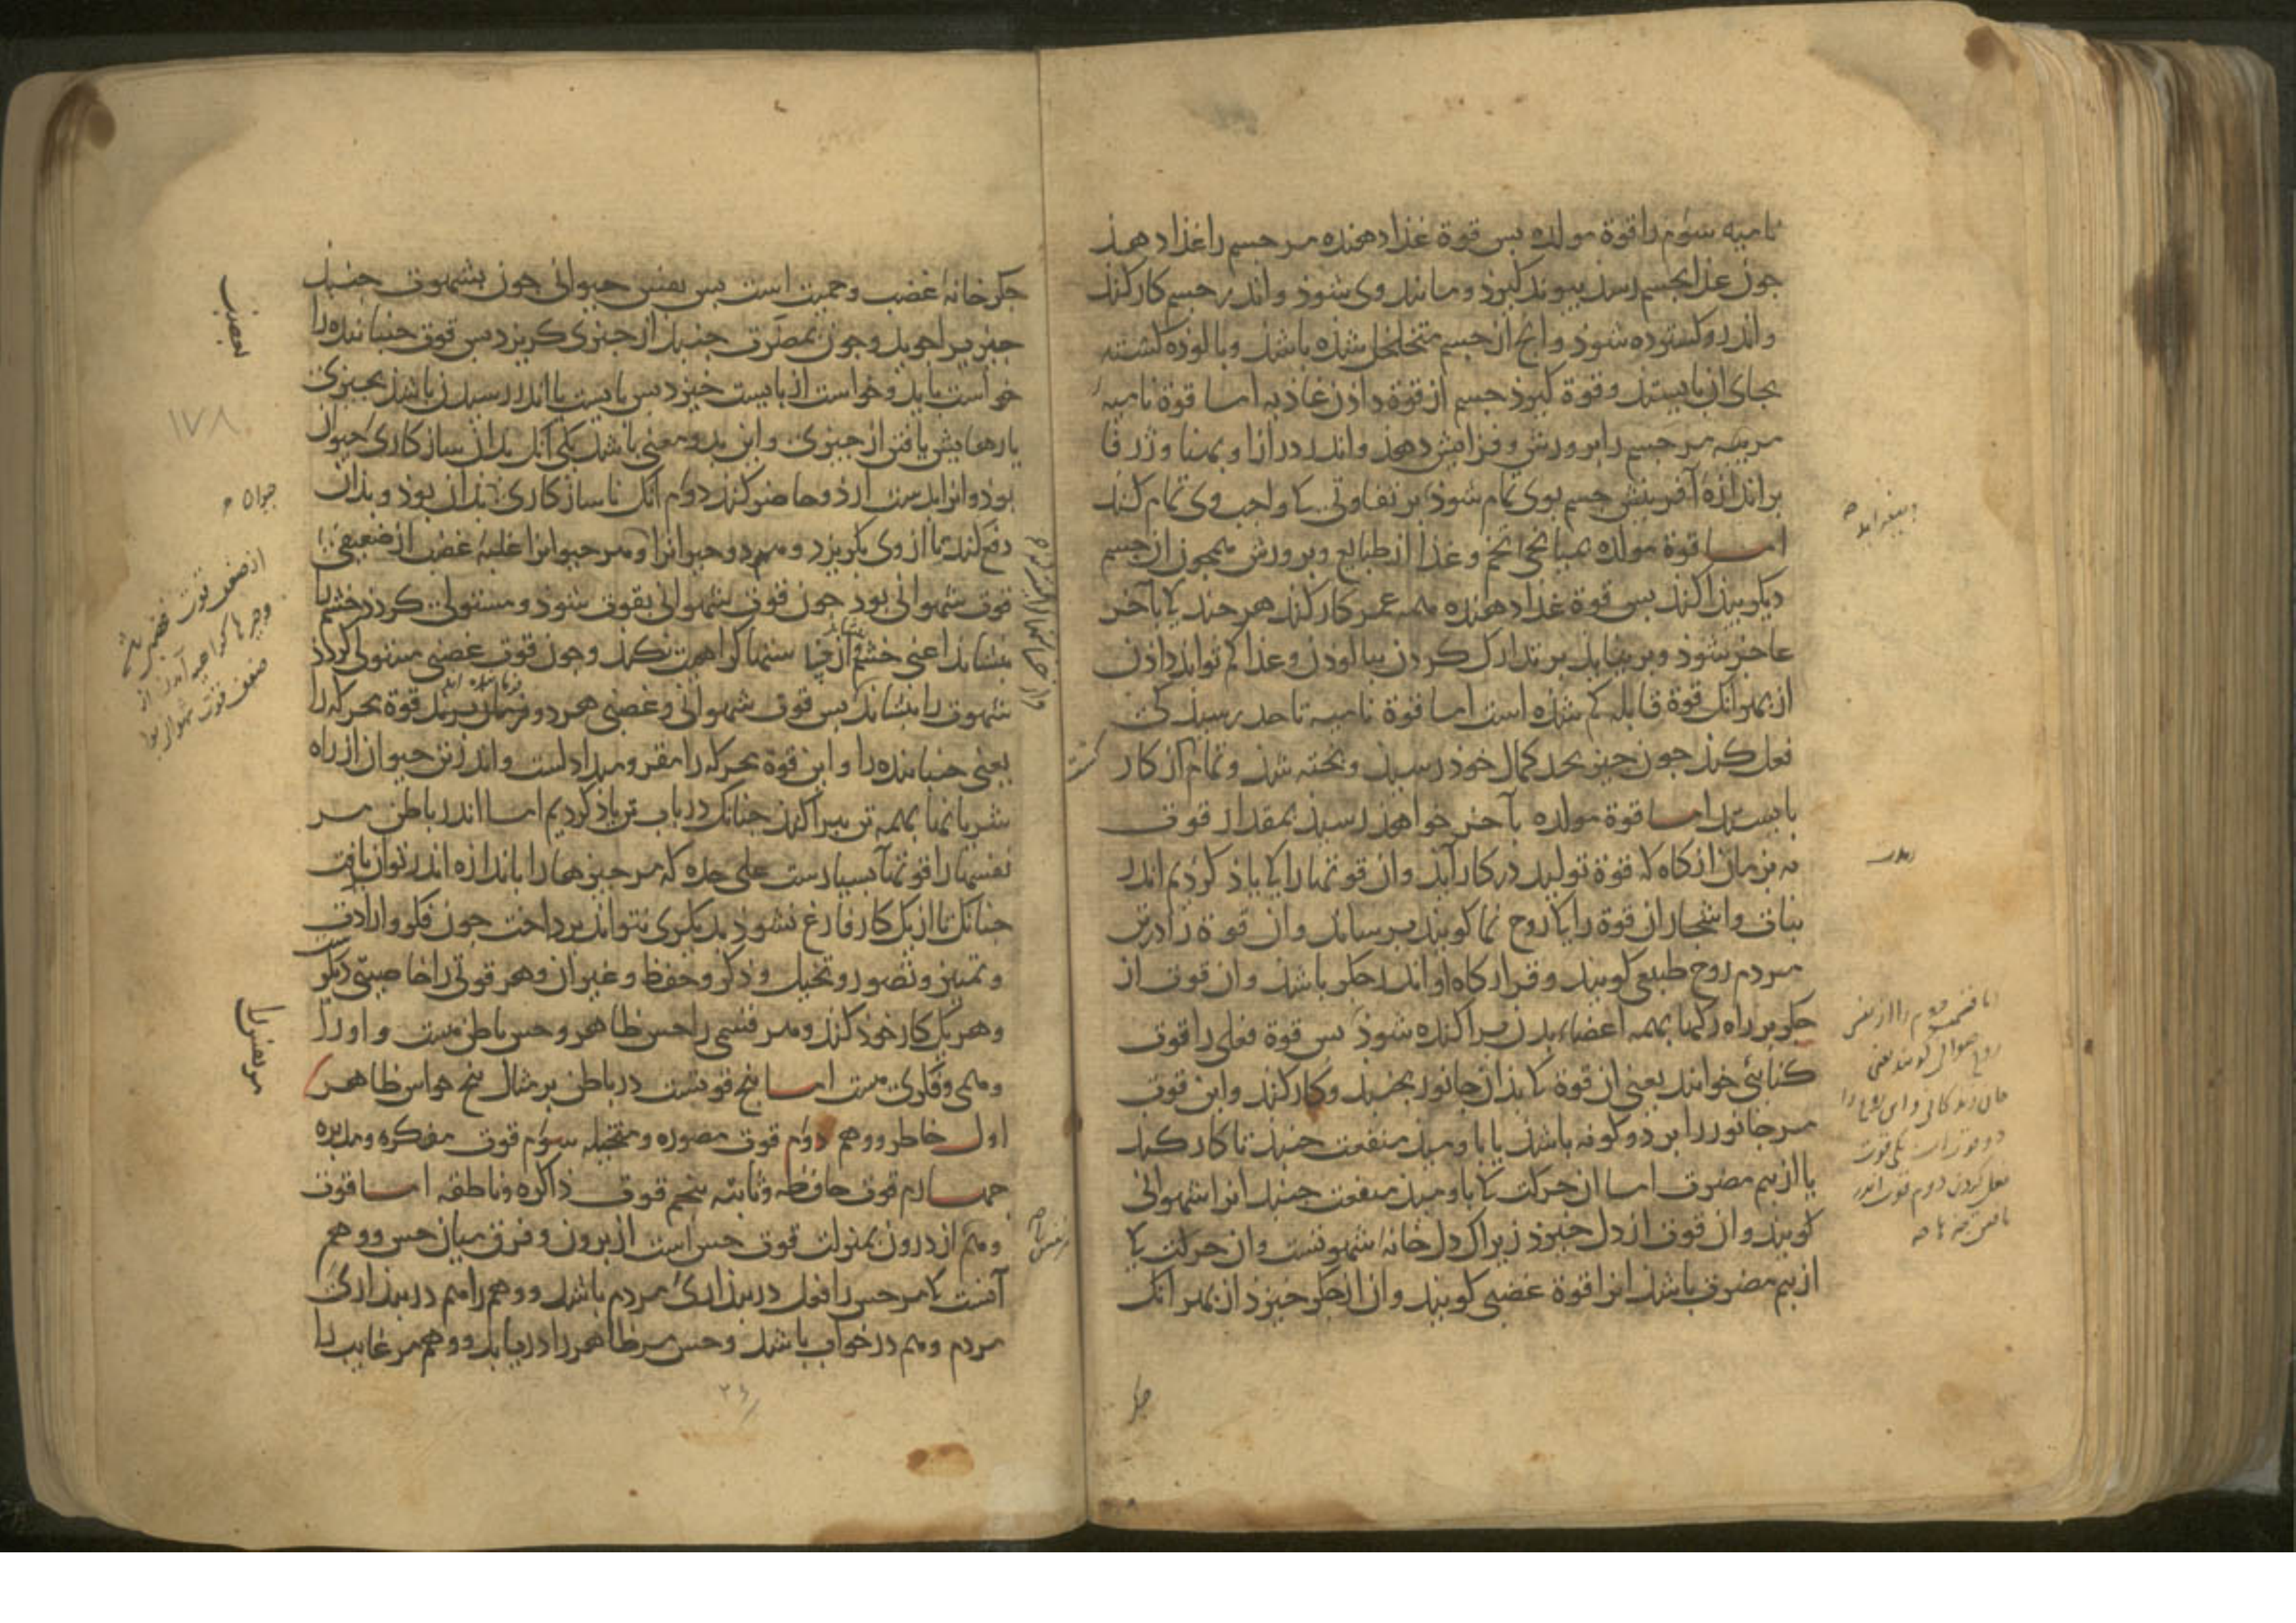 نامیه سوم را قوة مولده بس قوة غذا دهنده مر جسم را غذا دهذ
جون غذا بجسم رسد بیوند کیرذ و مانند وی شوذ و اندر جسم کار کند
و اندرو کسترده شوذ و آنج از جسم متخلخل شذه باشد و بالوذه کشته
بجای آن بایستد و قوة کیرذ جسم از قوة داذن غاذیه اما قوة نامیه
مربیه مر جسم را برورش و فزایش دهذ و اندر درازا و بهنا و ژرفا
بر اندازهٔ آفرینش جسم بوی تمام شوذ بر تفاوتی کا واجب وی تمام کند
اما قوة مولده بمیانجی تخم و غذا از طبایع و برورش همجون از جسم
دیکر بیذا کند بس قوة غذا دهنده همه عمر کار کند هر جند کا بآخر
عاجز شوذ و بر نیاید بر تدارک کردن ببالوذن و غذا کم تواند داذن
از بهر آنک قوة قابله کم شذه است اما قوة نامیه تا حد رسیدکی
فعل کند جون جیز بحد کمال خوذ رسید و بخته شد و تمام از کار
بایستد اما قوة مولده بآخر خواهذ رسید بمقدار قوت
نه بزمان از کاه که قوة تولید در کار آید و آن قوتها را کا یاذ کردیم اندر
نبات و اشجار آن قوة را کا روح نما کویند برساند و آن قوة را در تن
مردم روح طبیعی کویند و قرار کاه او اندر جکر باشد و آن قوت از
جکر بر راه رکها بهمه اعضاء بدن براکنده شوذ بس قوة فعلی را قوت
کنائی خوانند یعنی آن قوة کا بذان جانور بجنبد و کار کند و این قوت
مر جانور را بر دو کونه باشد یا باومید منفعت جنبد تا کار کند
یا از بیم مضرت اما آن حرکت کا باومید منفعت جنبد آنرا شهوانی
کویند و آن قوت از دل خیزذ زیراک دل خانهٔ شهوتست و آن حرکت کا
از بیم مضرت باشد آنرا قوة غضبی کویند و آن از جکر خیزد از بهر آنک
جکر
جکر خانهٔ غضب و حمیت است بس نفس حیوانی جون بشهوت جنبد
جیز را جوید و جون بمضرت جنبد از جیزی کریزد بس قوت جنباننده را
خواست باید و خواست از بایست خیزد بس بایست یا اندر رسیدن باشد بجیزی
یا رهایش یافتن از جیزی و این بدو معنی باشد یکی آنک بذان سازکاری حیوان
بوذ و آنرا بدست آرذ و حاضر کند دوم آنک ناسازکاری بذان بوذ و بذان
دفع کند تا از وی بکریزد و مردم و حیوانرا و مر حیوانرا غلبهٔ غضب از ضعیفی
قوت شهوانی بوذ جون قوت شهوانی بقوت شوذ و مستولی کردد خشم را
بنشاند اعنی خشم و از جیزها کراهیت نکند و جون قوت غضبی مستولی کردد
شهوت را بنشاند بس قوت شهوانی و غضبی هر دو فرمان برند قوة محرکه را
یعنی جنباننده را و این قوة محرکه را مقر و مبدا دلست و اندر تن حیوان از راه
شریانها بهمه تن ببراکند جنانک در باب تن یاذ کردیم اما اندر باطن مر
نفسها را قوتهاء بسیارست علی حده که مر جیزها را باندازه اندر توان یافت
جنانک تا از یک کار فارغ نشوذ بدیکری نتواند برداخت جون فکر و ارادت
و تمییز و تصور و تخیل و ذکر و حفظ و غیر آن و هر قوتی را خاصیتی دیکر
و هر یک کار خوذ کند و مر نفس را حس ظاهر و حس باطن هست و او را
وهمی و فکری هست اما بنج قوتست در باطن بر مثال بنج حواس ظاهر
اول خاطر و وهم دوم قوت مصوره و متخیله سوم قوت مفکره و مدبره
جهارم قوت حافظه و ثابته بنجم قوت ذاکره و ناطقه اما قوت
وهم از درون بمنزلت قوت حس است از برون و فرق میان حس و وهم
آنست کا مر حس را فعل در بیداری مردم باشد و وهم را هم در بیداری
مردم و هم در خواب باشد و حس مر ظاهر را دریابد و وهم مر غایب را
بغضب
۱۷۸
حیوان
مر نفس را